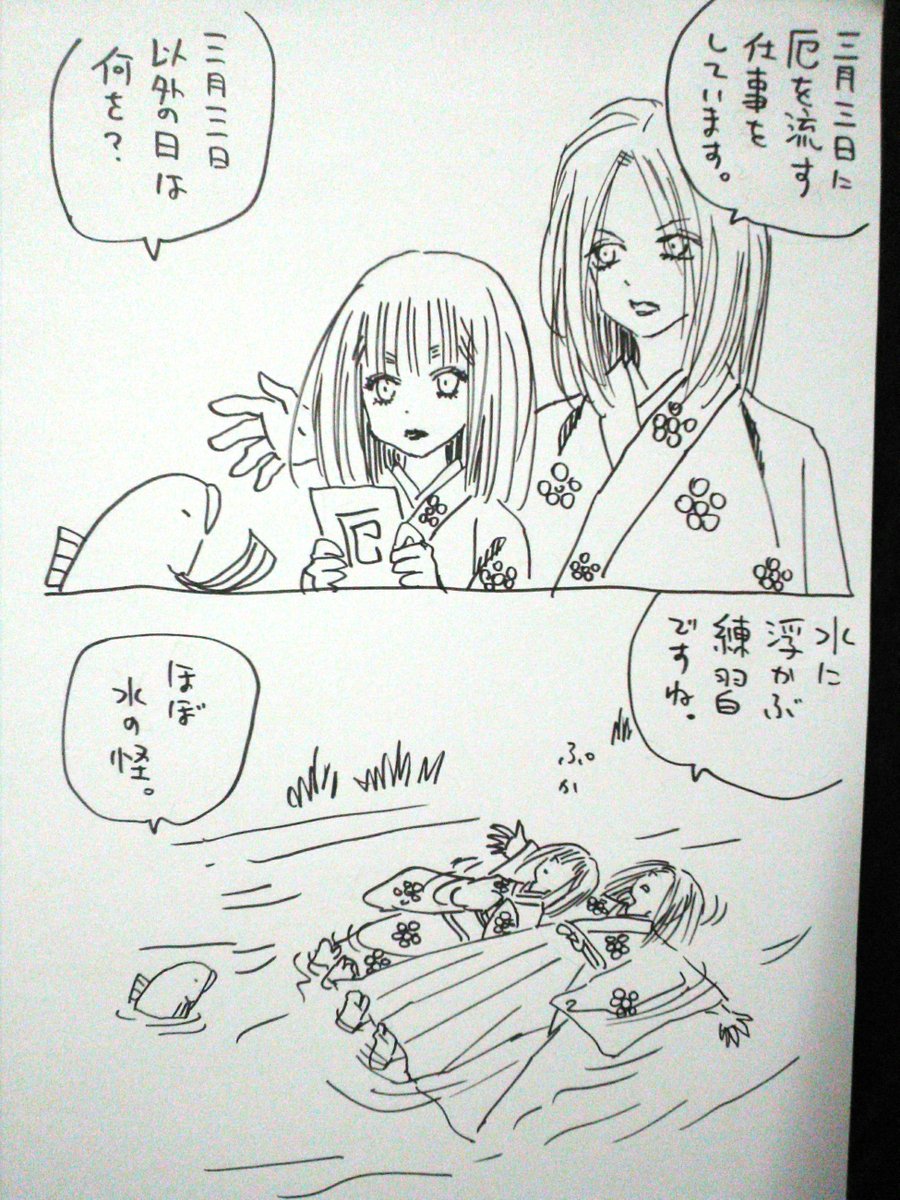 三月三日に
厄を流す
仕事を
しています。
三月三日
以外の日は
何を？
厄
水に
浮かぶ
練習
ですね。
ぷか
ほぼ
水の怪。